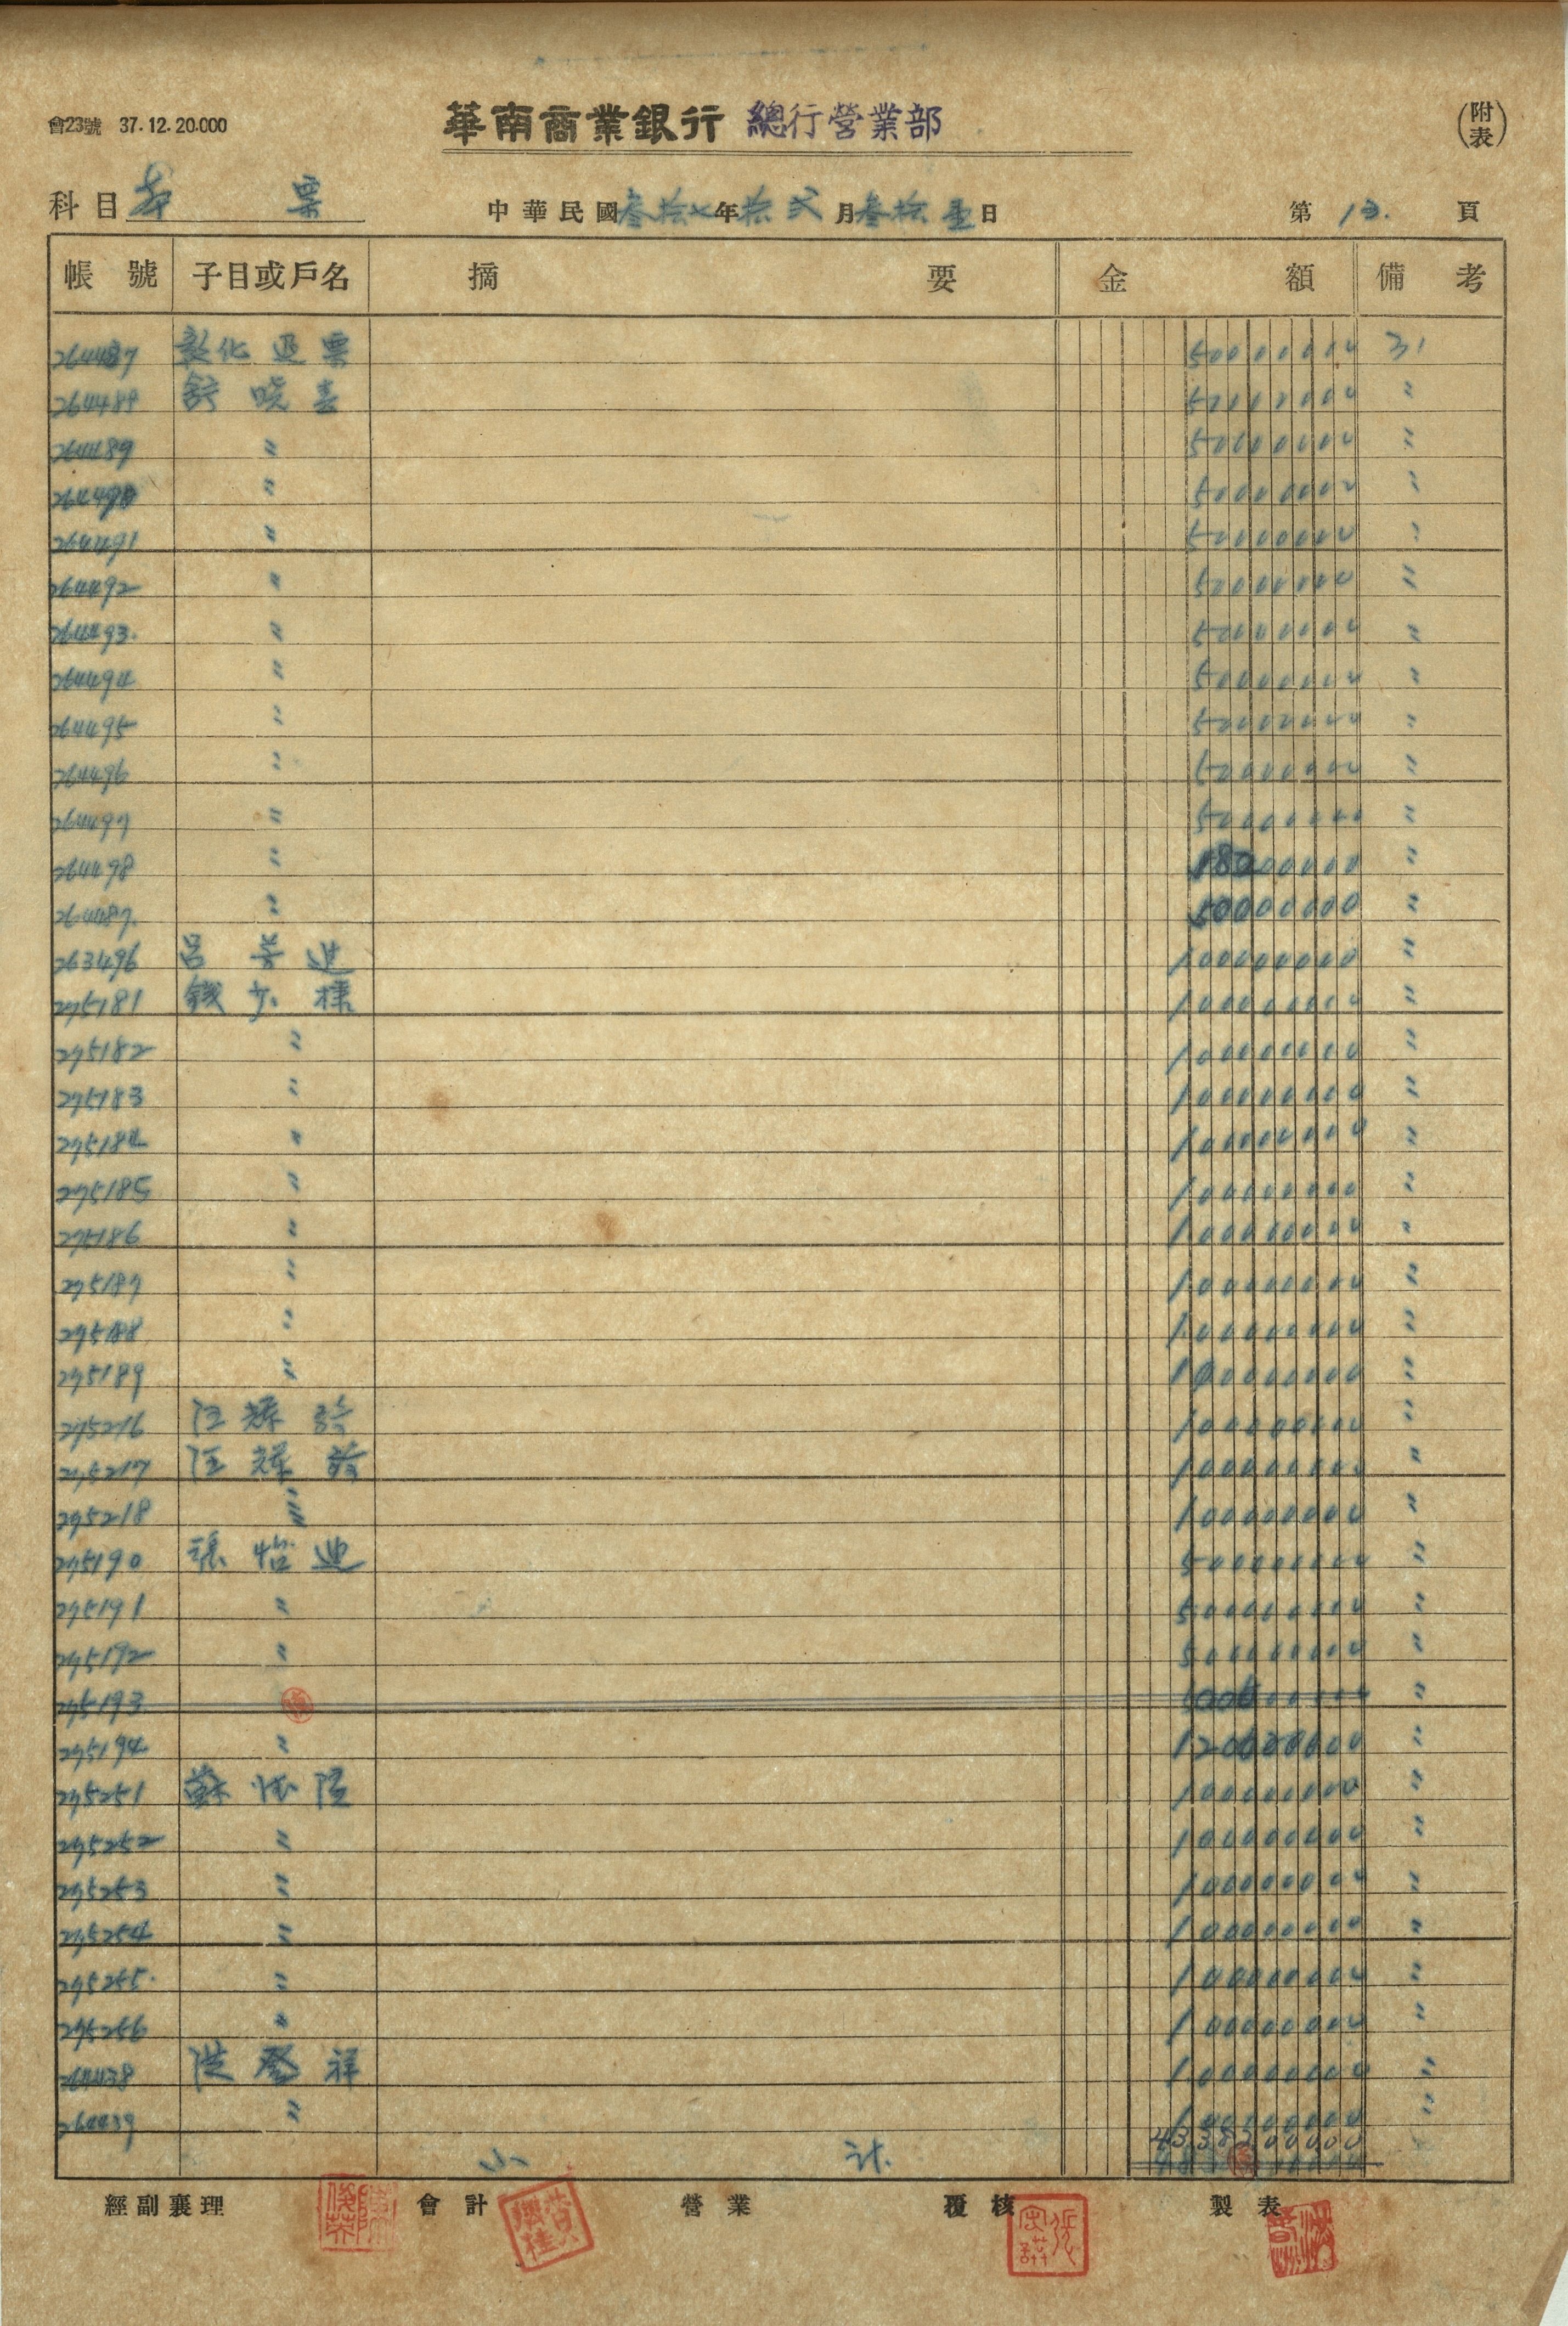 會23號 37.12.20.000
華南商業銀行 總行營業部
(附表)
科目 本票
中華民國叁拾七年拾弍月叁拾壹日
第13.頁
帳號 子目或戶名 摘要 金額 備考
264487 彰化退票 50000000 31
264488 舒曉春 50000000 〃
264489 〃 50000000 〃
264490 〃 50000000 〃
264491 〃 50000000 〃
264492 〃 50000000 〃
264493. 〃 50000000 〃
264494 〃 50000000 〃
264495 〃 50000000 〃
264496 〃 50000000 〃
264497 〃 50000000 〃
264498 〃 18200000 〃
264487. 〃 50000000 〃
263496 呂芳 100000000 〃
275181 錢 100000000 〃
275182 〃 100000000 〃
275183 〃 100000000 〃
275184 〃 100000000 〃
275185 〃 100000000 〃
275186 〃 100000000 〃
275187 〃 100000000 〃
275188 〃 100000000 〃
275189 〃 100000000 〃
275216 汪 100000000 〃
275217 汪 100000000 〃
275218 〃 100000000 〃
275190 張怡 500000000 〃
275191 〃 500000000 〃
275192 〃 500000000 〃
275193 〃
275194 〃 120000000 〃
275251 蘇 100000000 〃
275252 〃 100000000 〃
275253 〃 100000000 〃
275254 〃 100000000 〃
275255. 〃 100000000 〃
275256 〃 100000000 〃
264438 洪登祥 100000000 〃
264439 〃 〃
小計.
經副襄理 會計 營業 覆核 製表